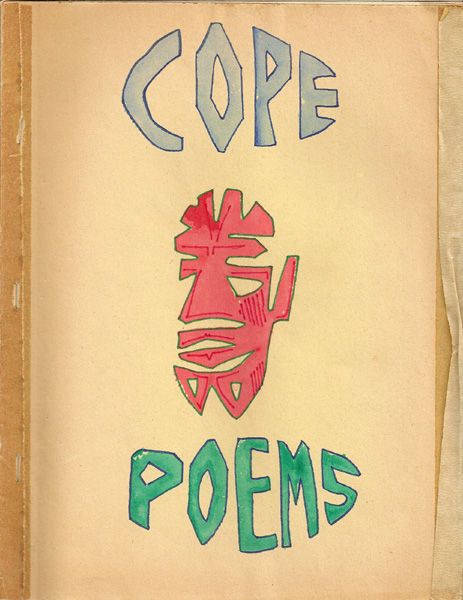 COPE
POEMS